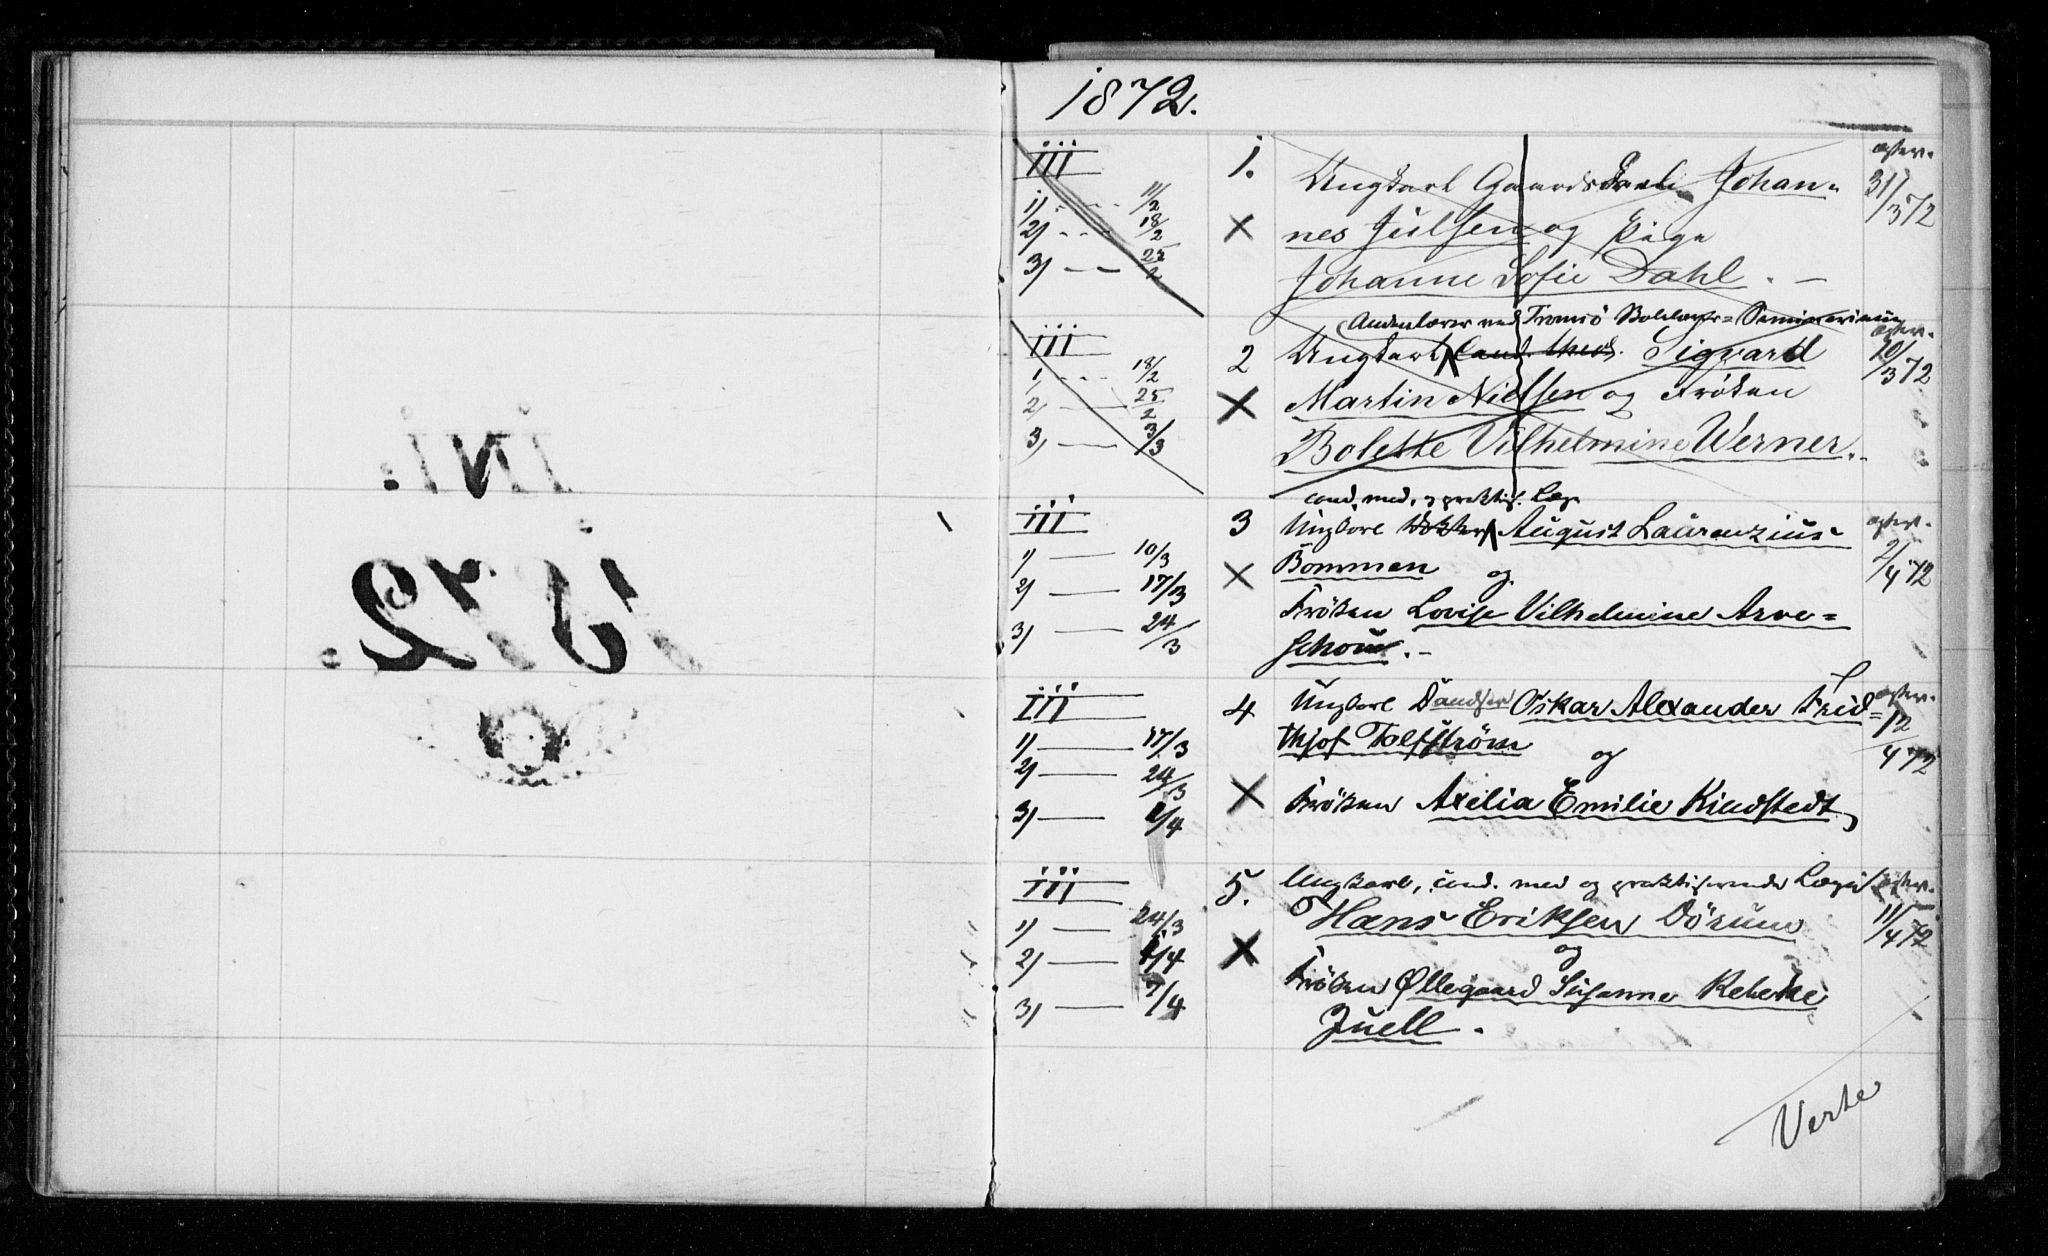 1872.
iii 1. Ungkarl Gaardskarl Johan= æster.
1) - - - 11/2 × nes Julsen og Pige 31/3 72
2) - - 18/2 Johanne Sofie Dahl. —
3) — — 25/2
Andenlærer ved Tromsö Seminarium
iii 2 Ungkarl cand. theol. Sigvard æster.
1 - - - 18/2 × Martin Nielsen og Frøken 20/3 72
2) — 25/2 Bolette Vilhelmine Werner.
3) — 3/3
cand. med. og praktis. Læge
iii 3 Ungkarl Dokter August Laurenzius æster.
1) — 10/3 × Bommen og 2/4 72
2) — 17/3 Frøken Lovise Vilhelmine Arve=
3) — 24/3 schoug. —
iii 4 Ungkarl Oskar Alexander Frid= æster.
1) — 17/3 thjof og 12/4 72
2) — 24/3 × Frøken Axelia Emilie Kindstedt,
3) — 1/4
iii 5. Ungkarl, cand. med og praktiserende Læge æster.
1) — 24/3 × Hans Eriksen Dörum 11/4 72
og
2) — 1/4 Frøken Øllegaard Susanne Rebekke
3) — 7/4 Juell.
Verte